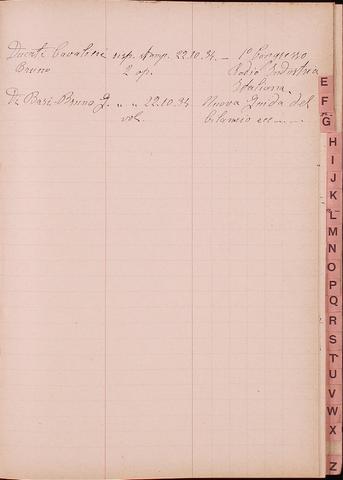 Duente Cavalieri risp. stamp. 22.10.34 — 1° Congresso
Bruno 2 op. Radio Industria
Italiana
De Basi Bruno G. " " 22.10.34 Nuova Guida del
vol. bilancio ecc ———
E
F
G
H
I
J
K
L
M
N
O
P
Q
R
S
T
U
V
W
X
Z